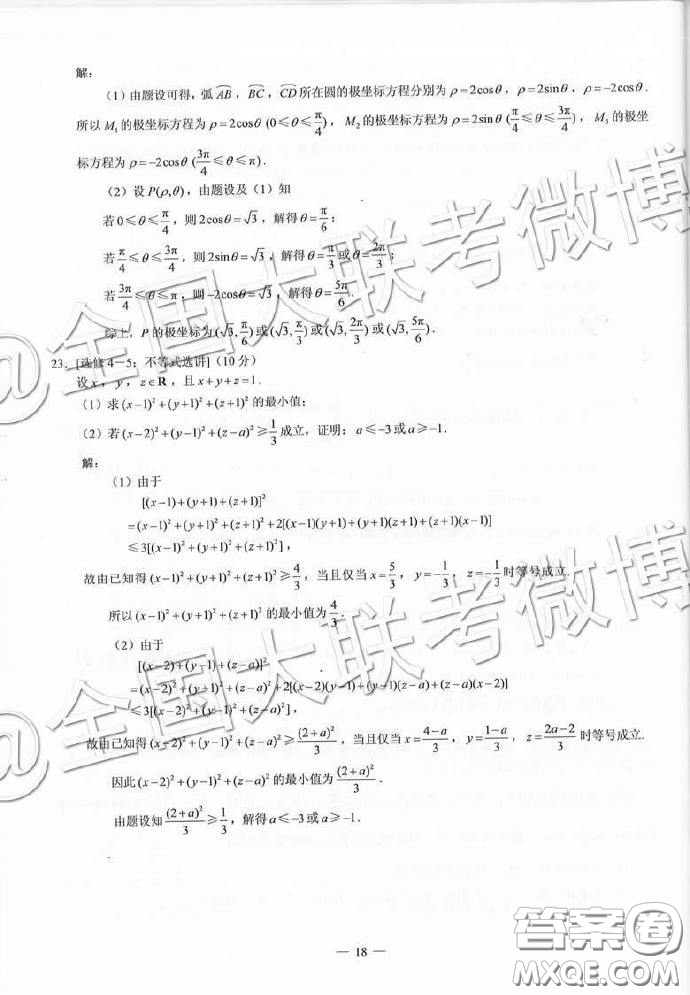 解:
(1)由题设可得,弧AB,BC,CD所在圆的极坐标方程分别为ρ=2cosθ,ρ=2sinθ,ρ=-2cosθ.
所以M₁的极坐标方程为ρ=2cosθ(0≤θ≤π/4),M₂的极坐标方程为ρ=2sinθ(π/4≤θ≤3π/4),M₃的极坐
标方程为ρ=-2cosθ(3π/4≤θ≤π).
(2)设P(ρ,θ),由题设及(1)知
若0≤θ≤π/4,则2cosθ=√3,解得θ=π/6;
若π/4≤θ≤3π/4,则2sinθ=√3,解得θ=π/3或θ=2π/3;
若3π/4≤θ≤π,则-2cosθ=√3,解得θ=5π/6.
综上,P的极坐标为(√3,π/6)或(√3,π/3)或(√3,2π/3)或(√3,5π/6).
23.[选修4-5:不等式选讲](10分)
设x,y,z∈R,且x+y+z=1.
(1)求(x-1)²+(y+1)²+(z+1)²的最小值;
(2)若(x-2)²+(y-1)²+(z-a)²≥1/3成立,证明:a≤-3或a≥-1.
解:
(1)由于
[(x-1)+(y+1)+(z+1)]²
=(x-1)²+(y+1)²+(z+1)²+2[(x-1)(y+1)+(y+1)(z+1)+(z+1)(x-1)]
≤3[(x-1)²+(y+1)²+(z+1)²],
故由已知得(x-1)²+(y+1)²+(z+1)²≥4/3,当且仅当x=5/3,y=-1/3,z=-1/3时等号成立.
所以(x-1)²+(y+1)²+(z+1)²的最小值为4/3.
(2)由于
[(x-2)+(y-1)+(z-a)]²
=(x-2)²+(y-1)²+(z-a)²+2[(x-2)(y-1)+(y-1)(z-a)+(z-a)(x-2)]
≤3[(x-2)²+(y-1)²+(z-a)²],
故由已知得(x-2)²+(y-1)²+(z-a)²≥(2+a)²/3,当且仅当x=(4-a)/3,y=(1-a)/3,z=(2a-2)/3时等号成立.
因此(x-2)²+(y-1)²+(z-a)²的最小值为(2+a)²/3.
由题设知(2+a)²/3≥1/3,解得a≤-3或a≥-1.
— 18 —
@全国大联考微博
@全国大联考微博
答案卷
MXQE.COM